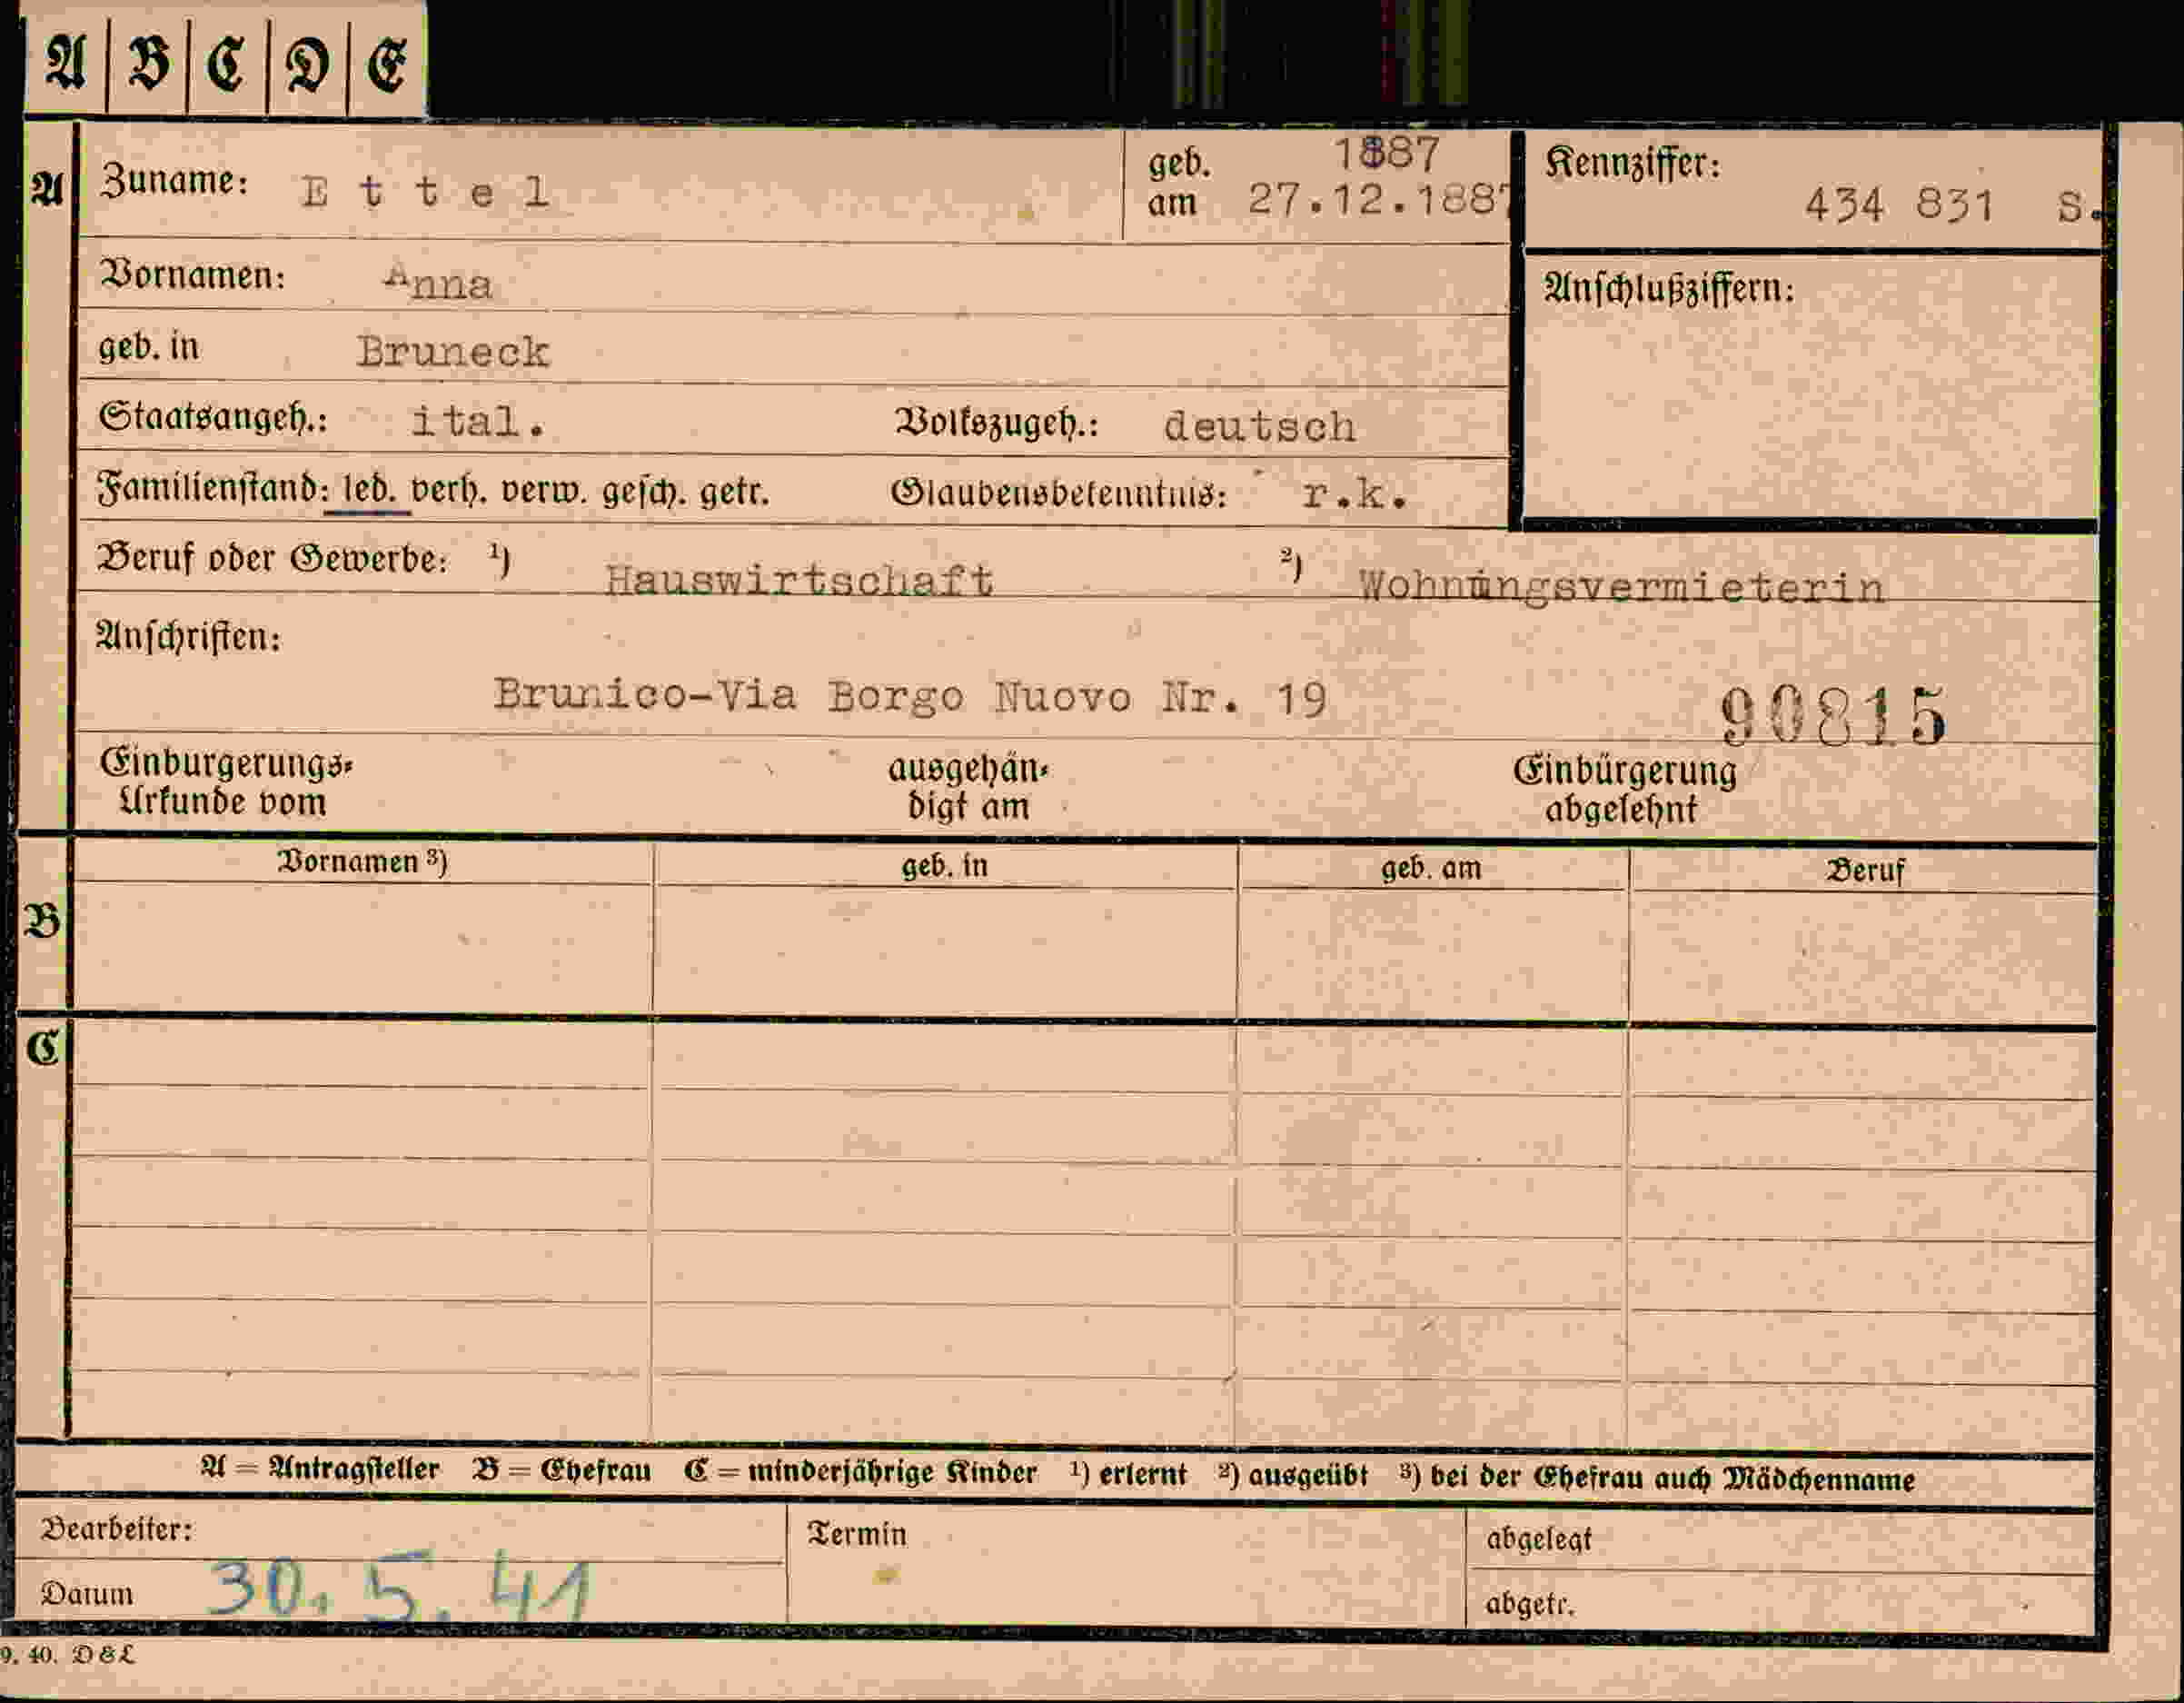 A B C D E
A Zuname: Ettel geb. am 1887 27.12.1887 Kennziffer: 434 831 S.
Vornamen: Anna Anschlußziffern:
geb. in Bruneck
Staatsangeh.: ital. Volkszugeh.: deutsch
Familienstand: led. verh. verw. gesch. getr. Glaubensbekenntnis: r.k.
Beruf oder Gewerbe: ¹) Hauswirtschaft ²) Wohnungsvermieterin
Anschriften:
Brunico-Via Borgo Nuovo Nr. 19 90815
Einbürgerungs-Urkunde vom ausgehändigt am Einbürgerung abgelehnt
Vornamen ³) geb. in geb. am Beruf
B
C
A = Antragsteller B = Ehefrau C = minderjährige Kinder ¹) erlernt ²) ausgeübt ³) bei der Ehefrau auch Mädchenname
Bearbeiter: Termin abgelegt
Datum 30.5.41 abgetr.
9. 40. D & L